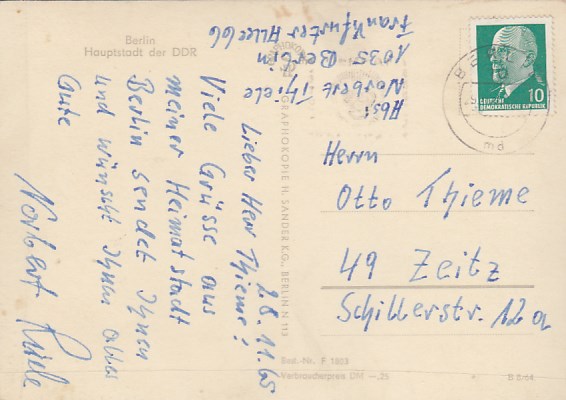 Berlin
Hauptstadt der DDR
Abs:
Norbert Thiele
1035 Berlin
Frankfurter Allee 66
28.11.65
Lieber Herr Thieme!
Viele Grüsse aus
meiner Heimatstadt
Berlin sendet Ihnen
und wünscht Ihnen alles
Gute
Norbert Thiele
GRAPHOKOPIE H. SANDER K.G., BERLIN N 113
10
DEUTSCHE
DEMOKRATISCHE REPUBLIK
BER
md
Herrn
Otto Thieme
49 Zeitz
Schillerstr. 12a
Best.-Nr. F 1803
Verbraucherpreis DM -.25